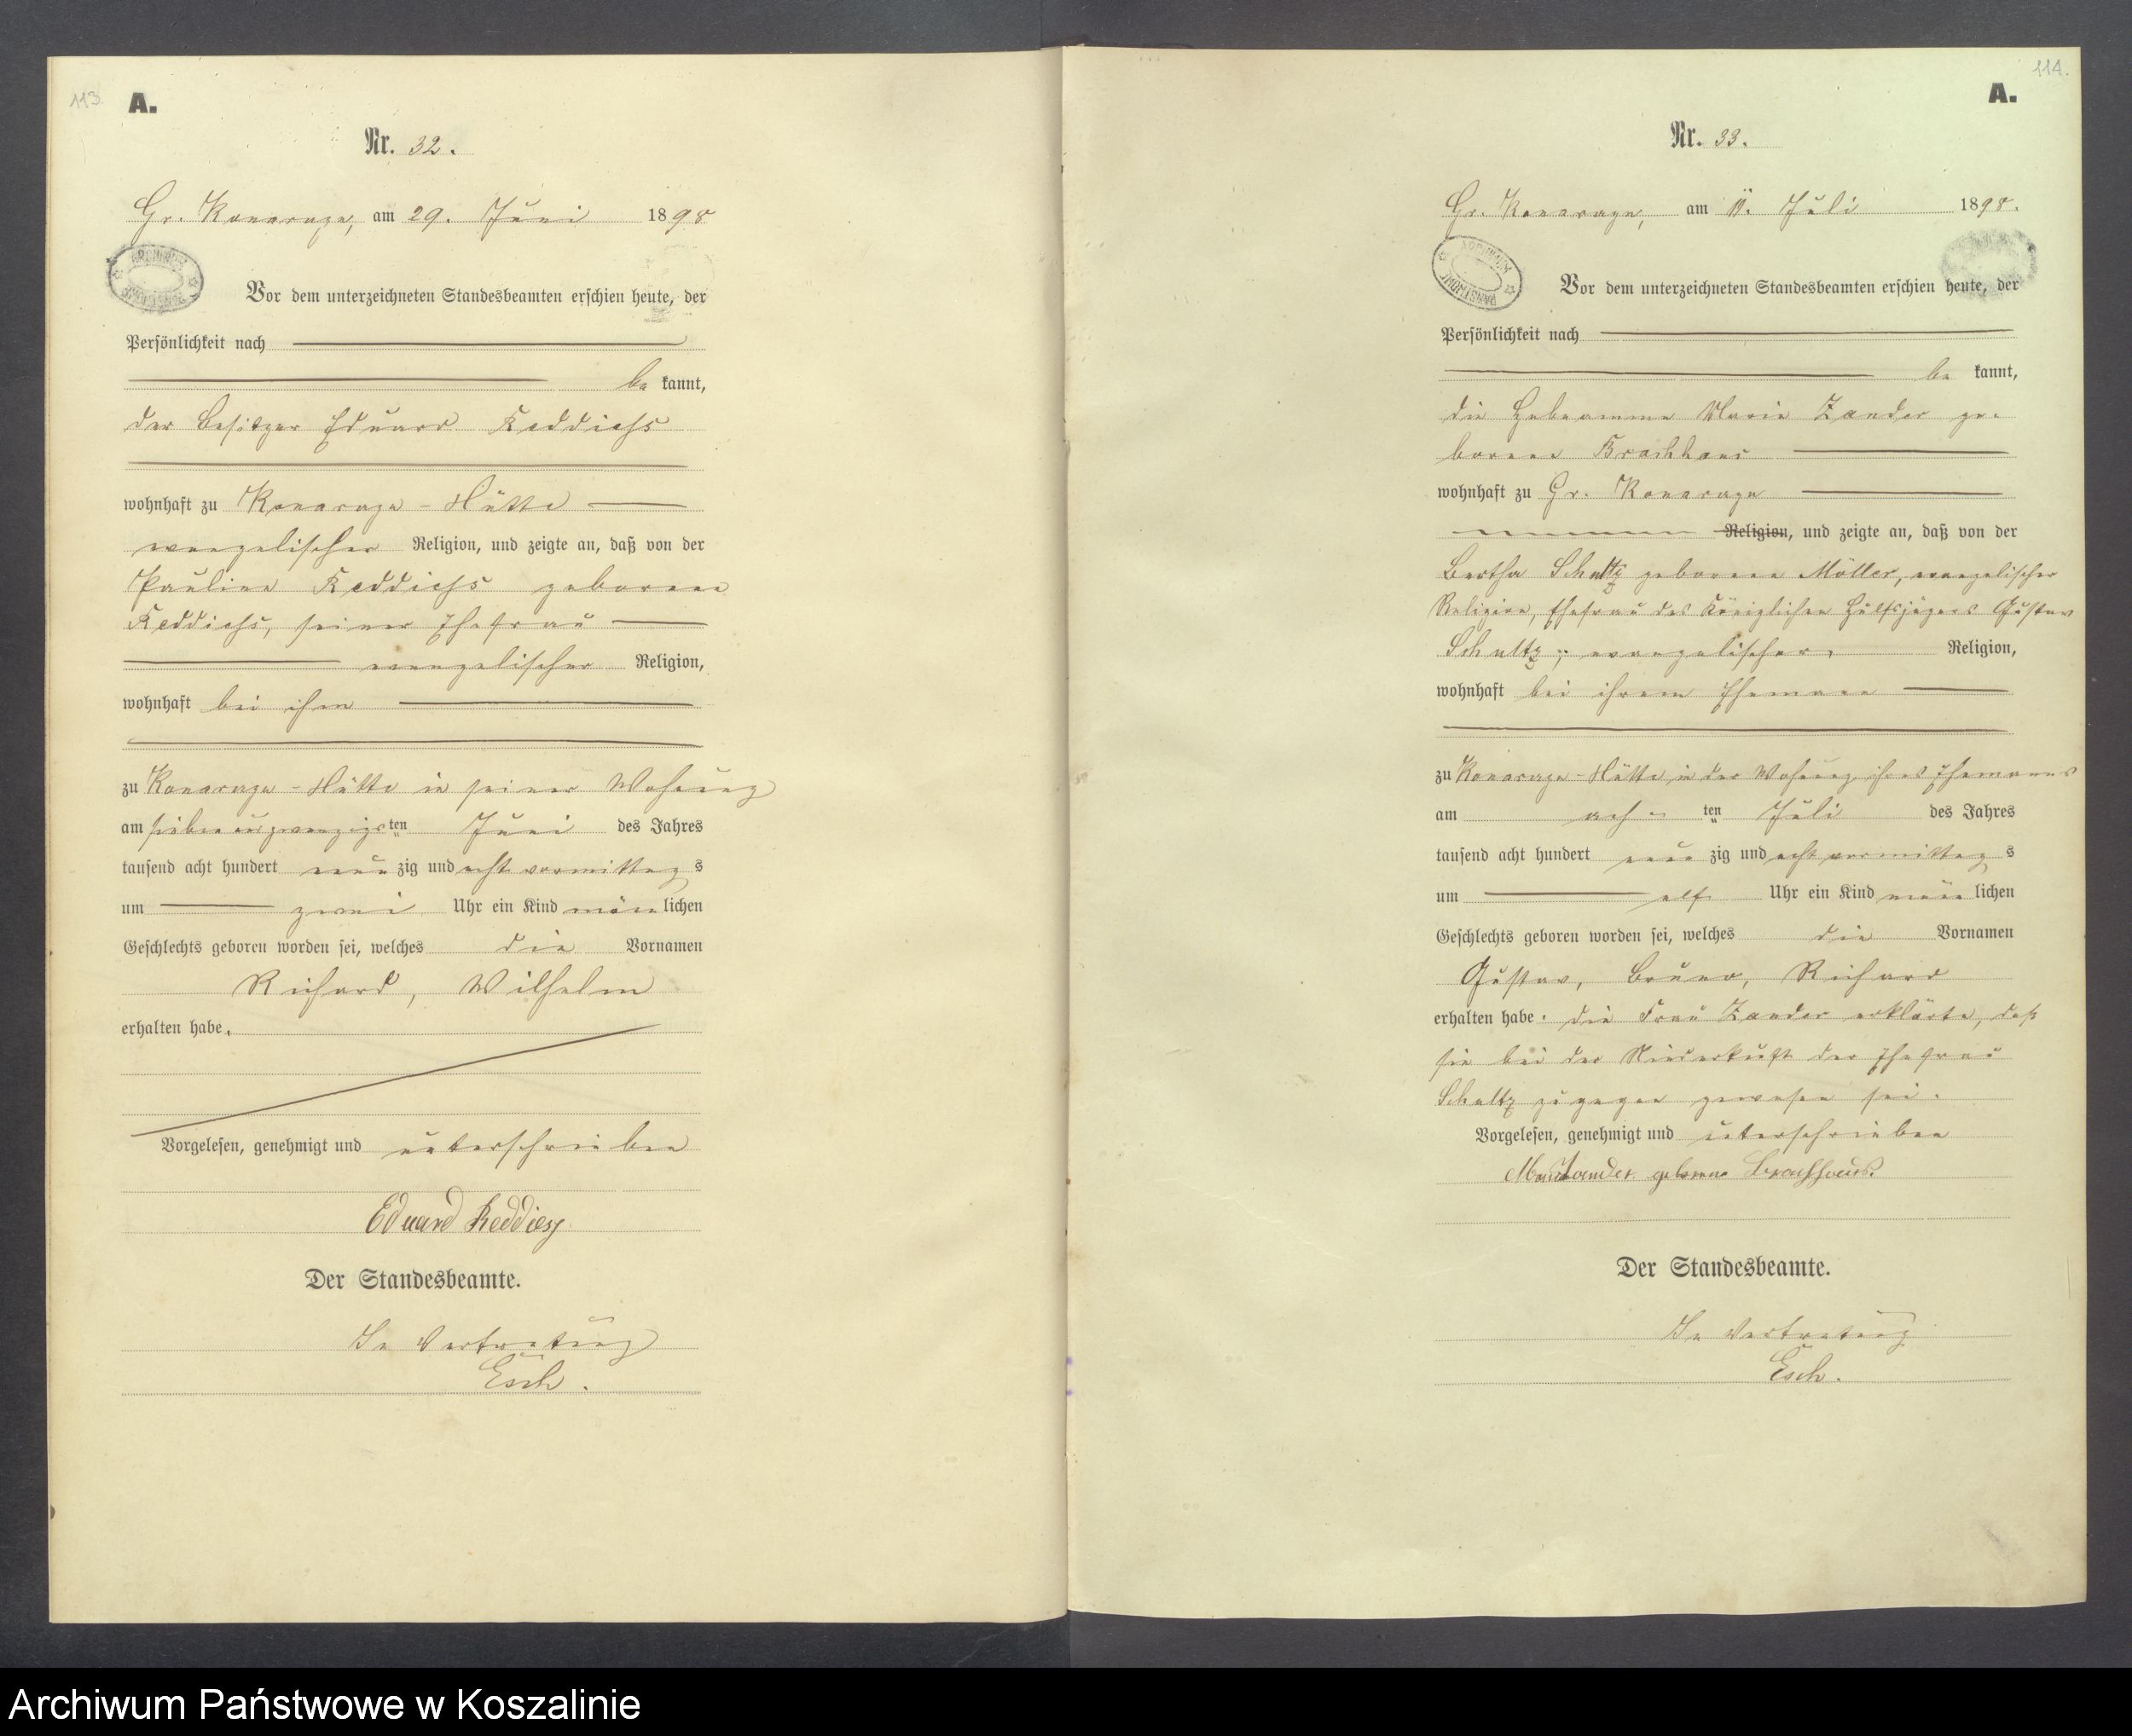 113.
A.
Nr. 32.
Gr. Konarage, am 29. Juni 1898
ARCHIWUM
Vor dem unterzeichneten Standesbeamten erschien heute, der
Persönlichkeit nach
be kannt,
der Besitzer Eduard Reddiess
wohnhaft zu Konarage - Hütte
evangelischer Religion, und zeigte an, daß von der
Pauline Reddiess geborene
Reddiess, seiner Ehefrau
evangelischer Religion,
wohnhaft bei ihm
zu Konarage - Hütte in seiner Wohnung
am siebenundzwanzigsten Juni des Jahres
tausend acht hundert neunzig und acht vormittags
um zwei Uhr ein Kind männlichen
Geschlechts geboren worden sei, welches die Vornamen
Richard, Wilhelm
erhalten habe.
Vorgelesen, genehmigt und unterschrieben
Eduard Reddiess
Der Standesbeamte.
In Vertretung
Esch.
114.
A.
Nr. 33.
Gr. Konarage, am 11. Juli 1898.
ARCHIWUM PAŃSTWOWE
Vor dem unterzeichneten Standesbeamten erschien heute, der
Persönlichkeit nach
be kannt,
die Hebeamme Marie Zander ge-
borene Brachhaus
wohnhaft zu Gr. Konarage
Religion, und zeigte an, daß von der
Bertha Schultz geborene Möller, evangelischer
Religion, Ehefrau des Königlichen Hülfsjägers Gustav
Schultz, evangelischer Religion,
wohnhaft bei ihrem Ehemann
zu Konarage - Hütte in der Wohnung ihres Ehemanns
am achten Juli des Jahres
tausend acht hundert neunzig und acht vormittags
um elf Uhr ein Kind männlichen
Geschlechts geboren worden sei, welches die Vornamen
Gustav, Bruno, Richard
erhalten habe. Die Frau Zander erklärte, daß
sie bei der Niederkunft der Ehefrau
Schultz zugegen gewesen sei.
Vorgelesen, genehmigt und unterschrieben
Marie Zander geborene Brachhaus.
Der Standesbeamte.
In Vertretung
Esch.
Archiwum Państwowe w Koszalinie